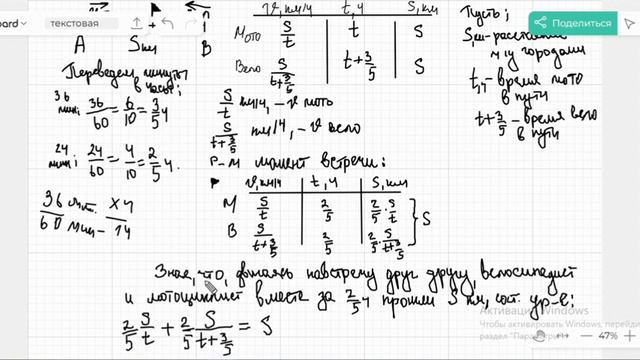 board
текстовая
Поделиться
v, км/ч t, ч S, км
Мото S/t t S
Вело S/(t+3/5) t+3/5 S
A S км B
Переведем минуты
в часы:
36 мин: 36/60 = 6/10 = 3/5 ч
24 мин: 24/60 = 4/10 = 2/5 ч.
36 мин. x ч
60 мин – 1ч
S/t км/ч, – v мото
S/(t+3/5) км/ч, – v вело
Р-м момент встречи:
v, км/ч t, ч S, км
М S/t 2/5 2/5 · S/t
В S/(t+3/5) 2/5 2/5 · S/(t+3/5)
} S
Пусть;
S, км – расстояние
м/у городами
t, ч – время мото
в пути
t+3/5 – время вело
в пути
Зная, что, двигаясь навстречу друг другу, велосипедист
и мотоциклист вместе за 2/5 ч прошли S км, сост. ур-е:
2/5 S/t + 2/5 S/(t+3/5) = S
Активация Windows
Чтобы активировать Windows, перейди
раздел "Параметры"
47%